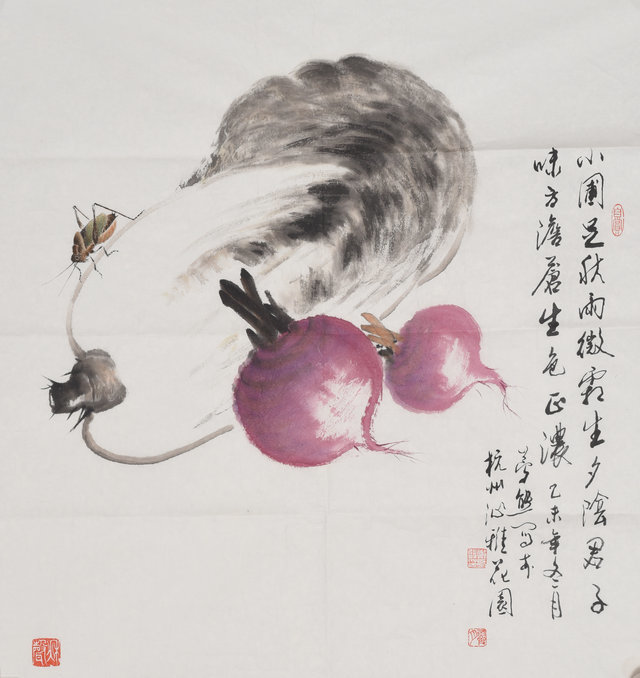 小圃足秋雨微霜生夕陰君子
味方澹蒼生色正濃 乙未年冬二月
夢熊寫於
杭州沁雅花園